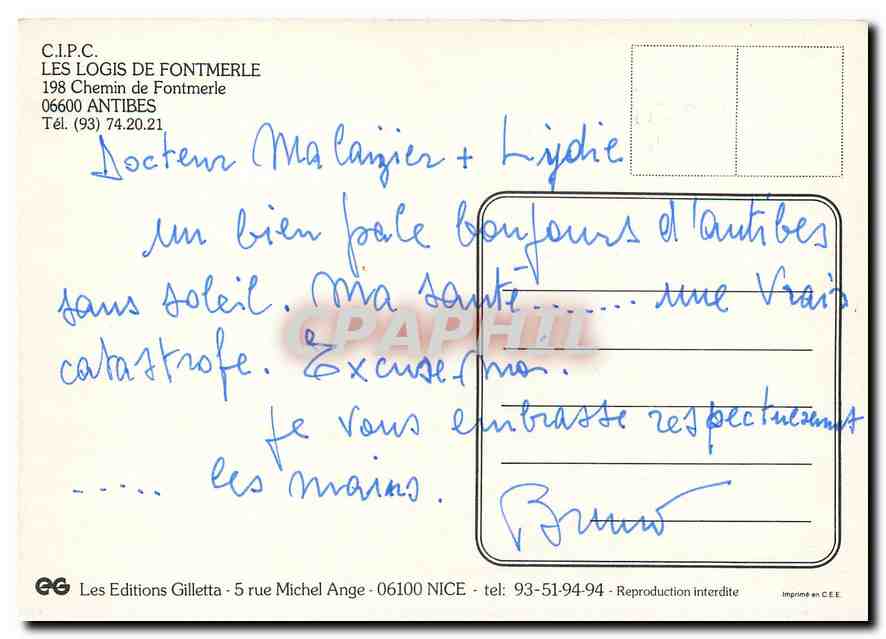 C.I.P.C.
LES LOGIS DE FONTMERLE
198 Chemin de Fontmerle
06600 ANTIBES
Tél. (93) 74.20.21
Docteur Malaizier + Lydie
un bien pale bonjours d'antibes
sans soleil. Ma santé....... une vrais
catastrofe. Excuser moi.
je vous embrasse respectuesement
..... les mains.
Bruno
CPAPHIL
EG Les Editions Gilletta - 5 rue Michel Ange - 06100 NICE - tel: 93-51-94-94 - Reproduction interdite
Imprimé en C.E.E.